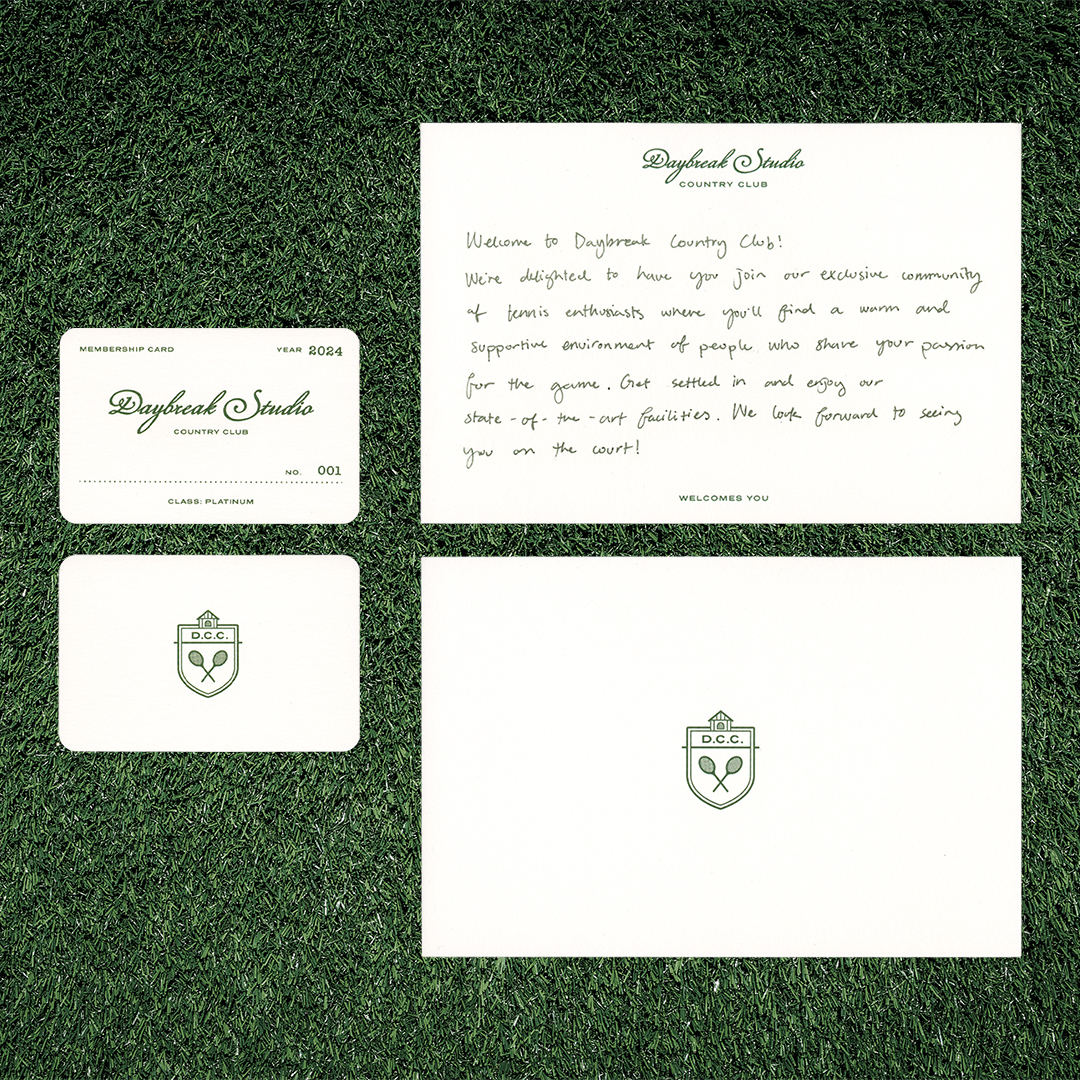 MEMBERSHIP CARD YEAR 2024
Daybreak Studio
COUNTRY CLUB
NO. 001
CLASS: PLATINUM
D.C.C.
Daybreak Studio
COUNTRY CLUB
Welcome to Daybreak Country Club!
We're delighted to have you join our exclusive community
of tennis enthusiasts where you'll find a warm and
supportive environment of people who share your passion
for the game. Get settled in and enjoy our
state-of-the-art facilities. We look forward to seeing
you on the court!
WELCOMES YOU
D.C.C.